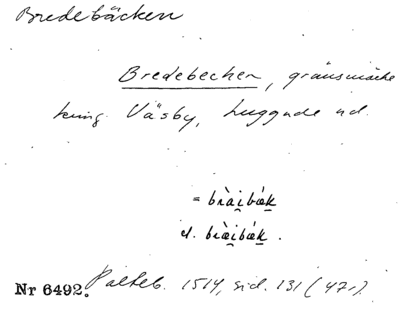 Bredebäcken
Bredebecken, gränsmärke
kring Väsby, Luggude hd.
= bràibæk
el. bræibæk.
Nr 6492. Palteb. 1514, sid. 131 (47r).